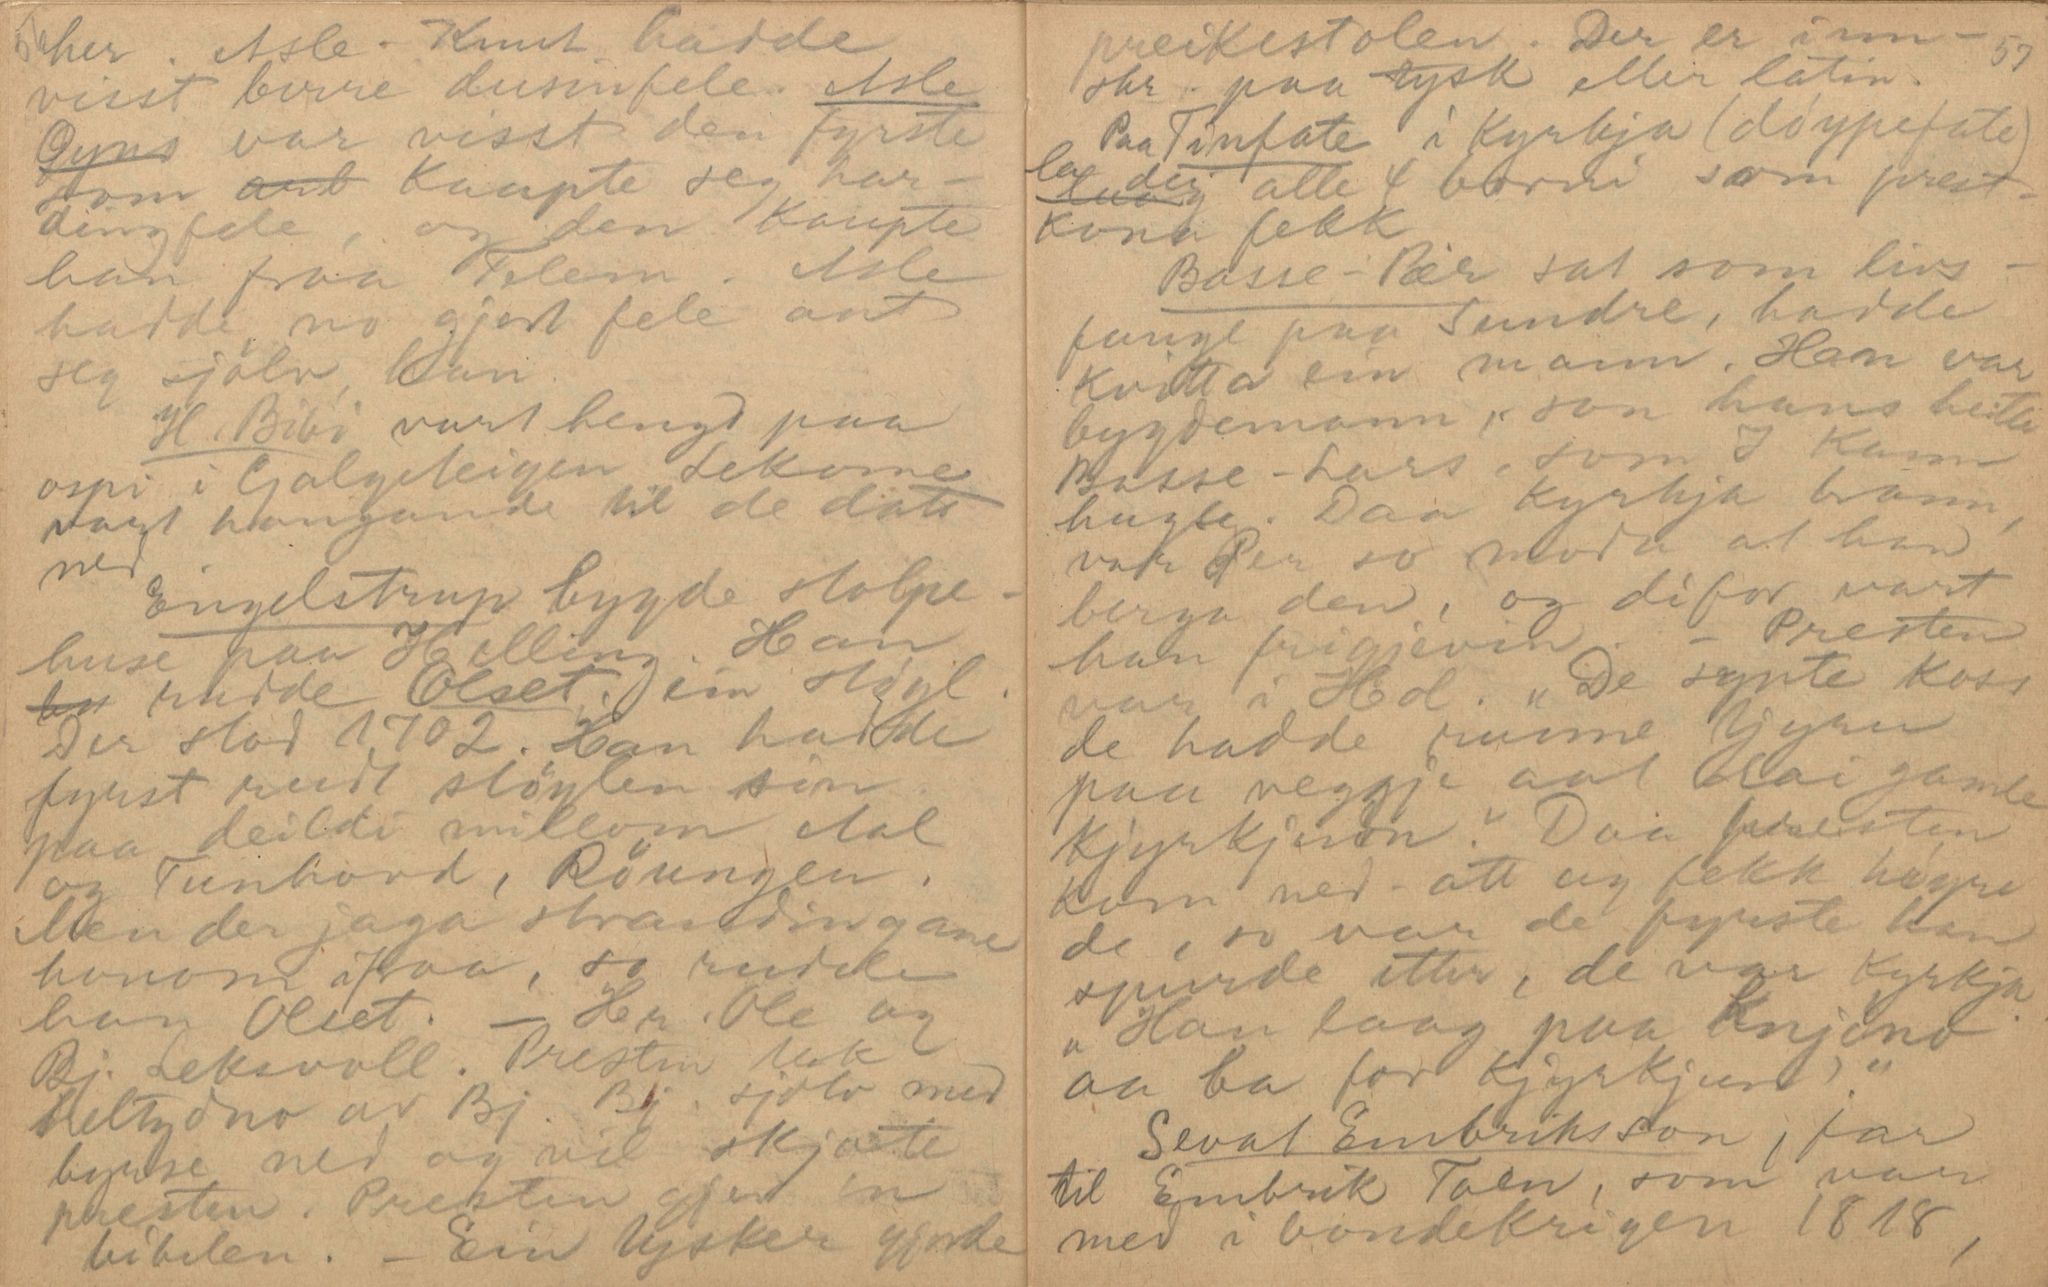 her. Asle-Knut hadde
visst berre dusinfele. Asle
Gyns var visst den fyrste
som kaupte seg har-
dingfele, og den kaupte
han fraa Telem. Asle
hadde no gjort fele aat
seg sjölv, han.
H. Bibi vart hengd paa
ospi i Galgeteigen Lekome
vart hangande til de datt
ned
Engelstrup bygde stolpe-
huse paa Helling. Han
rudde Olset, ein støyl.
Der stod 1702. Han hadde
fyrst rudt stöylen sin
paa deildi millom Aal
og Tunhovd, Röungen.
Men der jaga strandingane
honom ifraa, so rudde
han Olset. — Hr. Ole og
Bj. Leksvoll. Presten tok
heltydno av Bj. Bj. sjölv med
byrse ned og vil skjote
presten. Presten gjer in
bibelen. — Ein tysker gjorde
57
preikestolen. Der er inn-
skr. paa tysk eller latin.
Paa Tinfate i Kyrkja (döypefate)
la dei alle 4 borni som prest-
kona fekk
Basse-Pær sat som livs-
fange paa Sundre, hadde
kvitta ein mann. Han var
bygdemann, son hans heitte
Basse-Lars, som I kann
hugse. Daa Kyrkja brann,
var Per so moda at han
berga den, og difor vart
han frigjevin. — Presten
var i Hd. "De synte koss
de hadde runne tjyru
paa veggje aat dai gamle
kjyrkjuen." Daa presten
kom ned-att og fekk høyre
de, so var de fyrste han
spurde etter, de var kyrkja.
"Han laag paa knjeno
aa ba for kjyrkjun."
Sevat Embriksson, far
til Embrik Toen, som var
med i bondekrigen 1818,